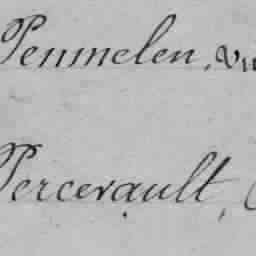 Penmelen,
Percevault,